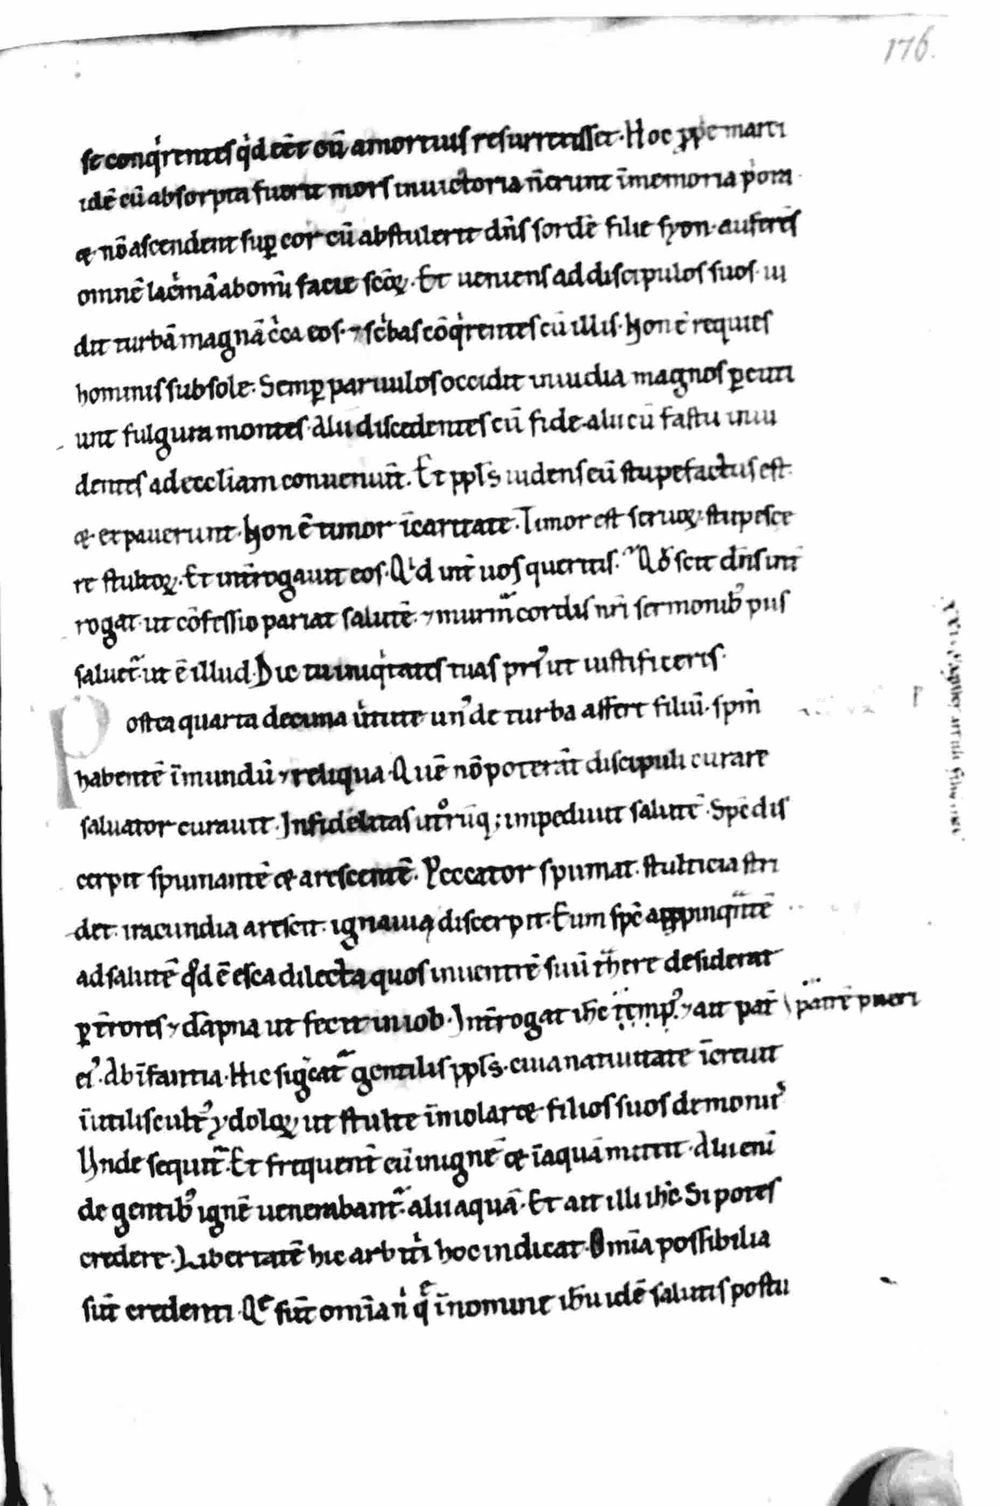 176.
se conq'rentes q'd eēt cū a mortuis resurrexisset. Hoc ꝓpe marti
idē cū absorpta fuerit mors in uictoria n̄ erunt in memoria p'ora
& nō ascendent suꝑ cor cū abstulerit dn̄s sordē filie syon. auferēs
omnē lac'mā ab om̄i facie scōꝝ. Et ueniens ad discipulos suos. ui
dit turbā magnā c'ca eos. ⁊ sc'bas cōq'rentes cū illis. Hon ē requies
hominis sub sole. Semꝑ paruulos occidit inuidia magnos ꝑcuti
unt fulgura montes. Alii discedentes cū fide. alii cū fastu inui
dentes ad eccl̄iam conueniūt. Et ppl̄s uidens eū stupefactus est.
& expauerunt. Hon ē timor ī caritate. Timor est seruoꝝ. stupesce
re stultoꝝ. Et int̄rogauit eos. Q'd int̄ uos queritis. Qd̄ scit dn̄s int̄
rogat. ut cōfessio pariat salutē. ⁊ murm̄ cordis nr̄i sermonib' piis
saluet̄. ut ē illud. Dic tu iniq'tates tuas pri' ut iustificeris.
Postea quarta decima u'tute un' de turba affert filiū. sp̄m
habentē īmundū ⁊ reliqua. Quē nō poterāt discipuli curare
saluator curauit. Infidelitas ut°rūq; impediuit salutē. Spc̄ dis
cerpit spumantē & arescentē. Peccator spumat. stulticia stri
det. iracundia arescit. ignauia discerpit. Eum spc̄ appinq̄ntē
ad salutē qd̄ ē esca dilecta quos in uentrē suū t̄here desiderat
ꝑ t̄rores ⁊ dāpna ut fecit in iob. Int̄rogat ihc̄ ⁊ ait pat̄ \ pat̄rē pueri
ei'. Ab īfantia. Hic sig'cat̄ gentilis ppl̄s. cui a natiuitate īcreuit
inutilis cult' ydoloꝝ ut stulte īmolaret filios suos demoni'
Unde sequit̄. Et frequent̄ eū in ignē & ī aquā mittit. Alii enī
de gentib' ignē uenerabant̄. alii aquā. Et ait illi ihc̄. Si potes
credere. Libertatē hic arbit'i hoc indicat. Omīa possibilia
sūt credenti. Qe sūt omīa n' q̄ ī nomine ih̄u idē salutis postu